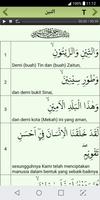 11:12
التين
بِسْمِ اللَّهِ الرَّحْمَٰنِ الرَّحِيمِ
وَالتِّينِ وَالزَّيْتُونِ
1
Demi (buah) Tin dan (buah) Zaitun,
وَطُورِ سِينِينَ
2
dan demi bukit Sinai,
وَهَٰذَا الْبَلَدِ الْأَمِينِ
3
dan demi kota (Mekah) ini yang aman,
لَقَدْ خَلَقْنَا الْإِنسَانَ فِي أَحْسَنِ
تَقْوِيمٍ
4
sesungguhnya Kami telah menciptakan
manusia dalam bentuk yang sebaik-baiknya